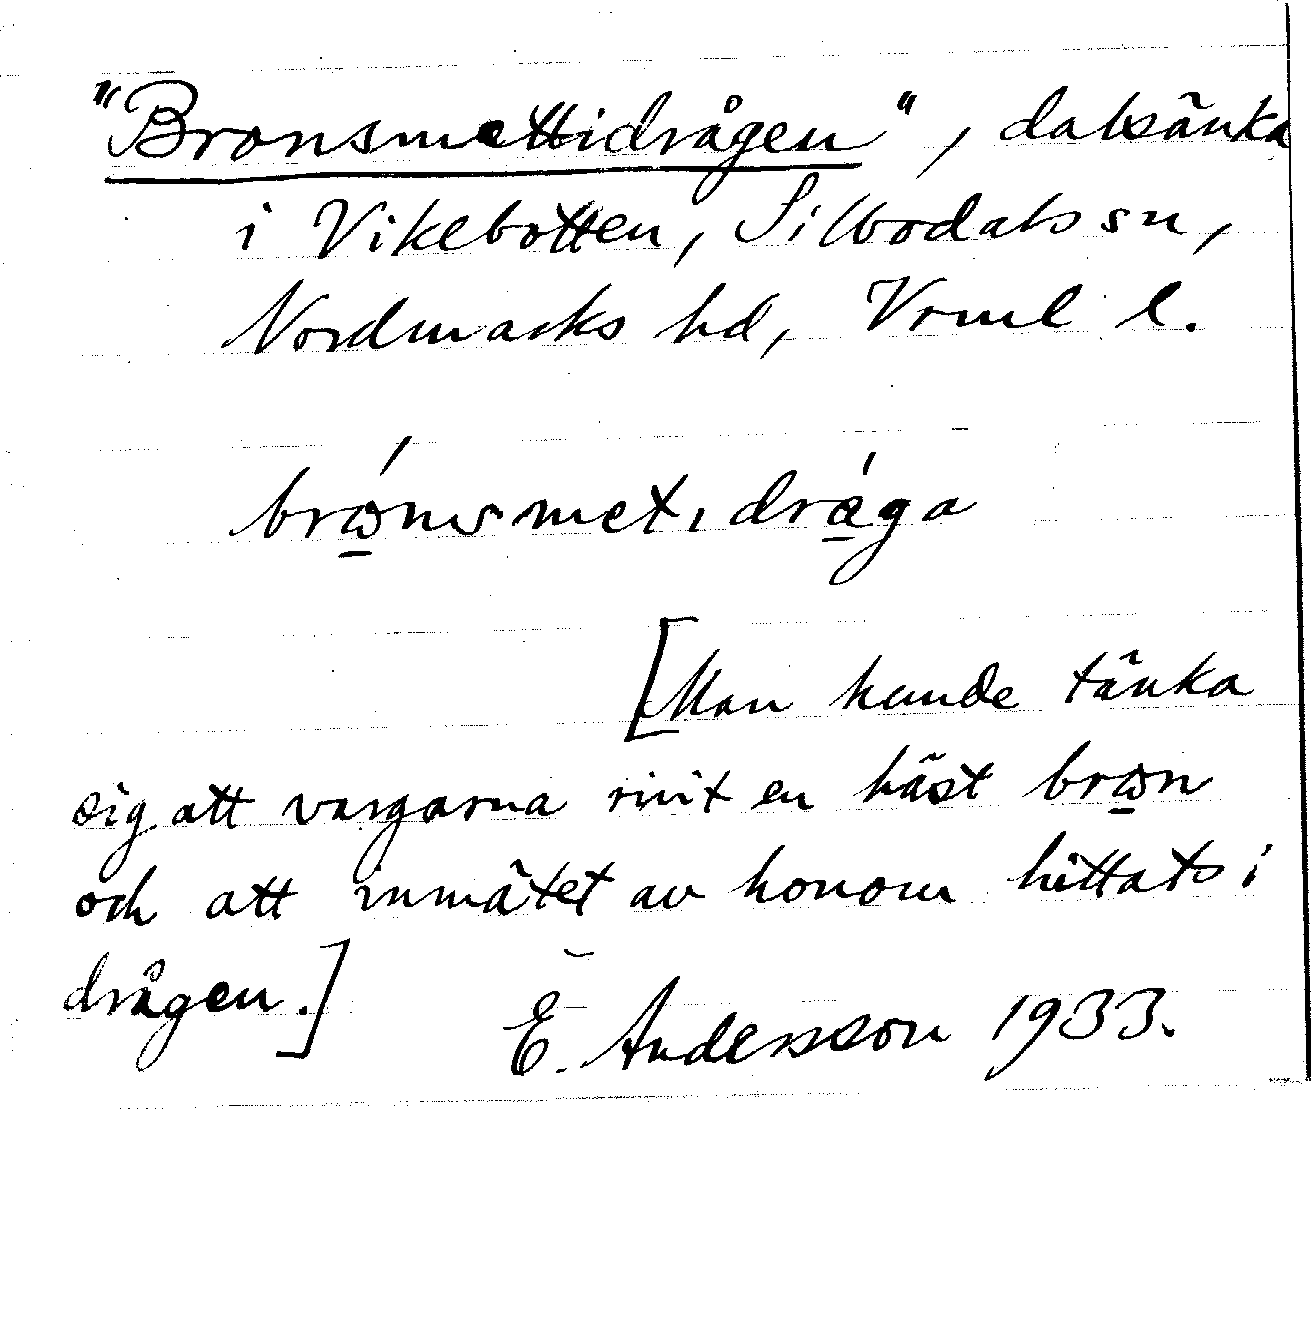 "Bronsmettidrågen", dalsänka
i Vikebotten, Silbodals sn,
Nordmarks hd, Vrml l.
[Man kunde tänka
sig att vargarna rivit en häst
och att inmätet av honom hittats i
drågen.] E. Andersson 1933.